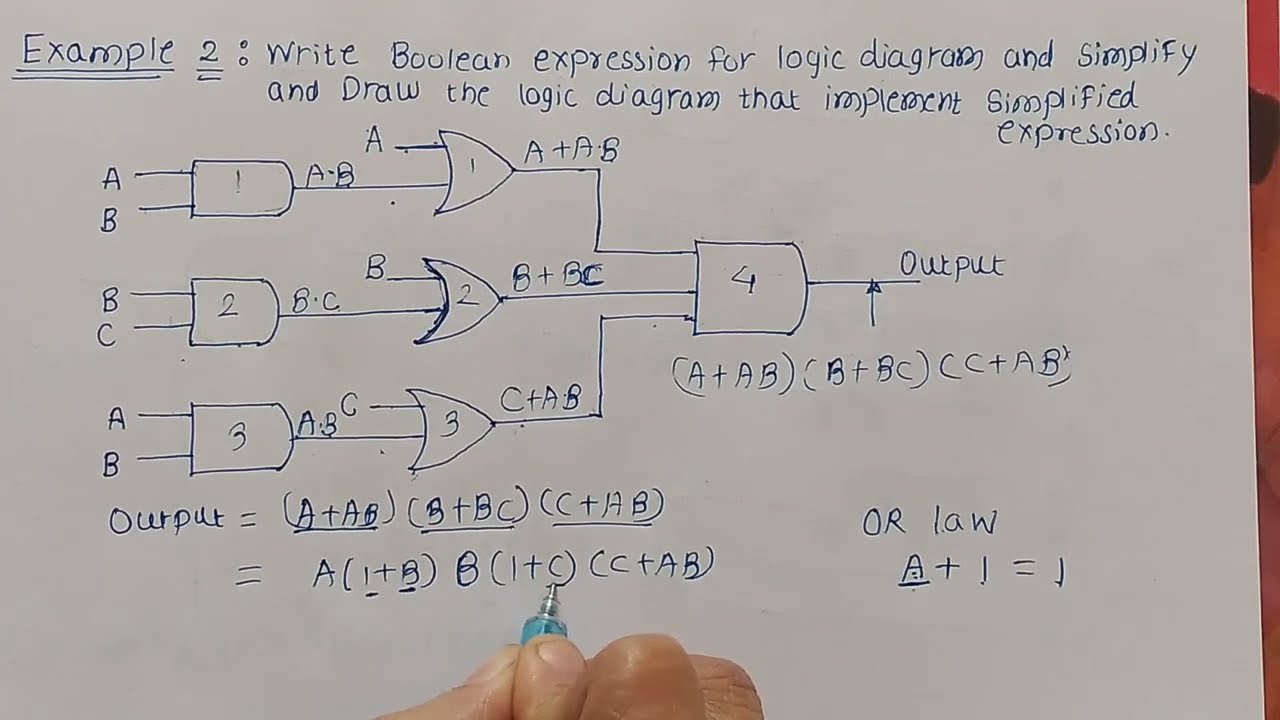 Example 2 : Write Boolean expression for logic diagram and simplify
and Draw the logic diagram that implement simplified
expression.
A
A+A·B
A
B
1
A·B
1
B
B+BC
4
Output
B
C
2
B·C
2
(A+AB)(B+BC)(C+AB)
A
B
3
A·B
C
3
C+A·B
Output = (A+AB)(B+BC)(C+AB)
= A(1+B) B(1+C)(C+AB)
OR law
A+1=1